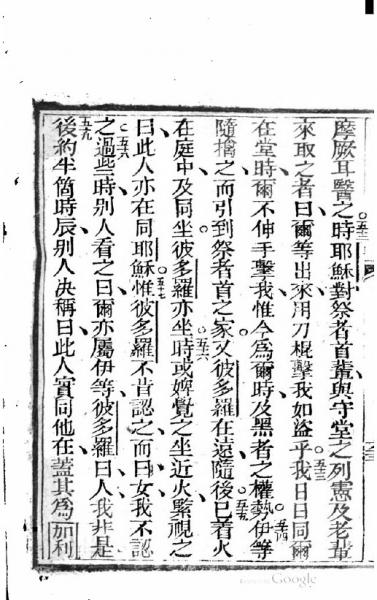 摩厥耳醫之五二時耶穌對祭者首輩與守堂之列憲及老輩
來取之者曰爾等出來用刀棍擊我如盜乎五三我日日同爾
在堂時爾不伸手擊我惟今為爾時及黑者之權勢五四伊等
隨擒之而引到祭者首之家又彼多羅在遠隨後五五已着火
在庭中及同坐彼多羅亦坐時五六或婢覺之坐近火緊視之
曰此人亦在同耶穌五七惟彼多羅不肯認之而曰女我不認
之五八過些時別人看之曰爾亦屬伊等彼多羅曰人我非是
五九後約半箇時辰別人決稱曰此人實同他在蓋其為加利
Google